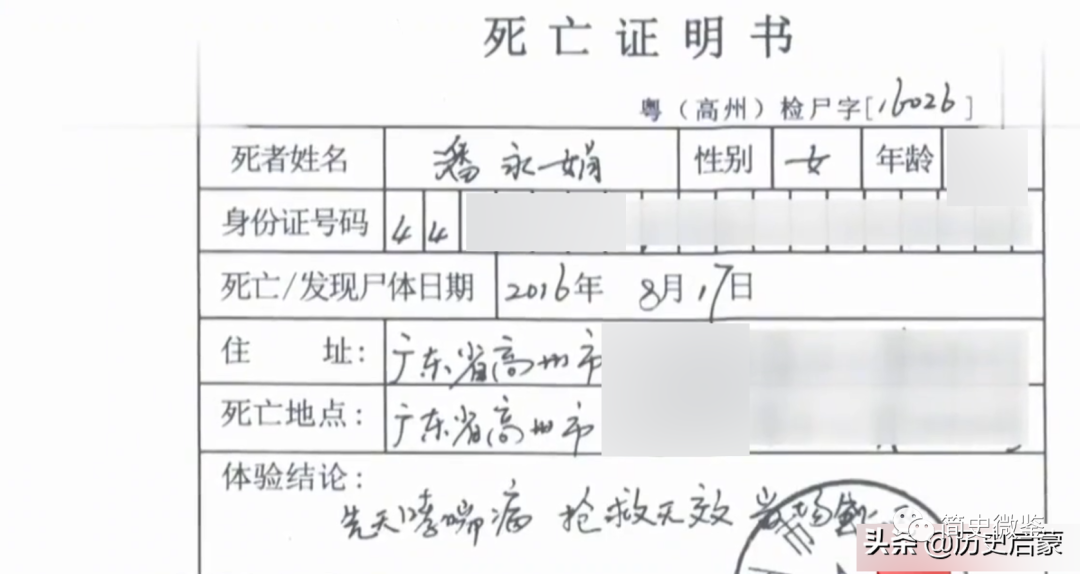 死亡证明书
粤（高州）检尸字[16026]
死者姓名 潘永娟 性别 女 年龄
身份证号码 44
死亡/发现尸体日期 2016年 8月17日
住 址: 广东省高州市
死亡地点: 广东省高州市
体验结论:
先天哮喘病 抢救无效
市
简史微鉴
头条@历史启蒙